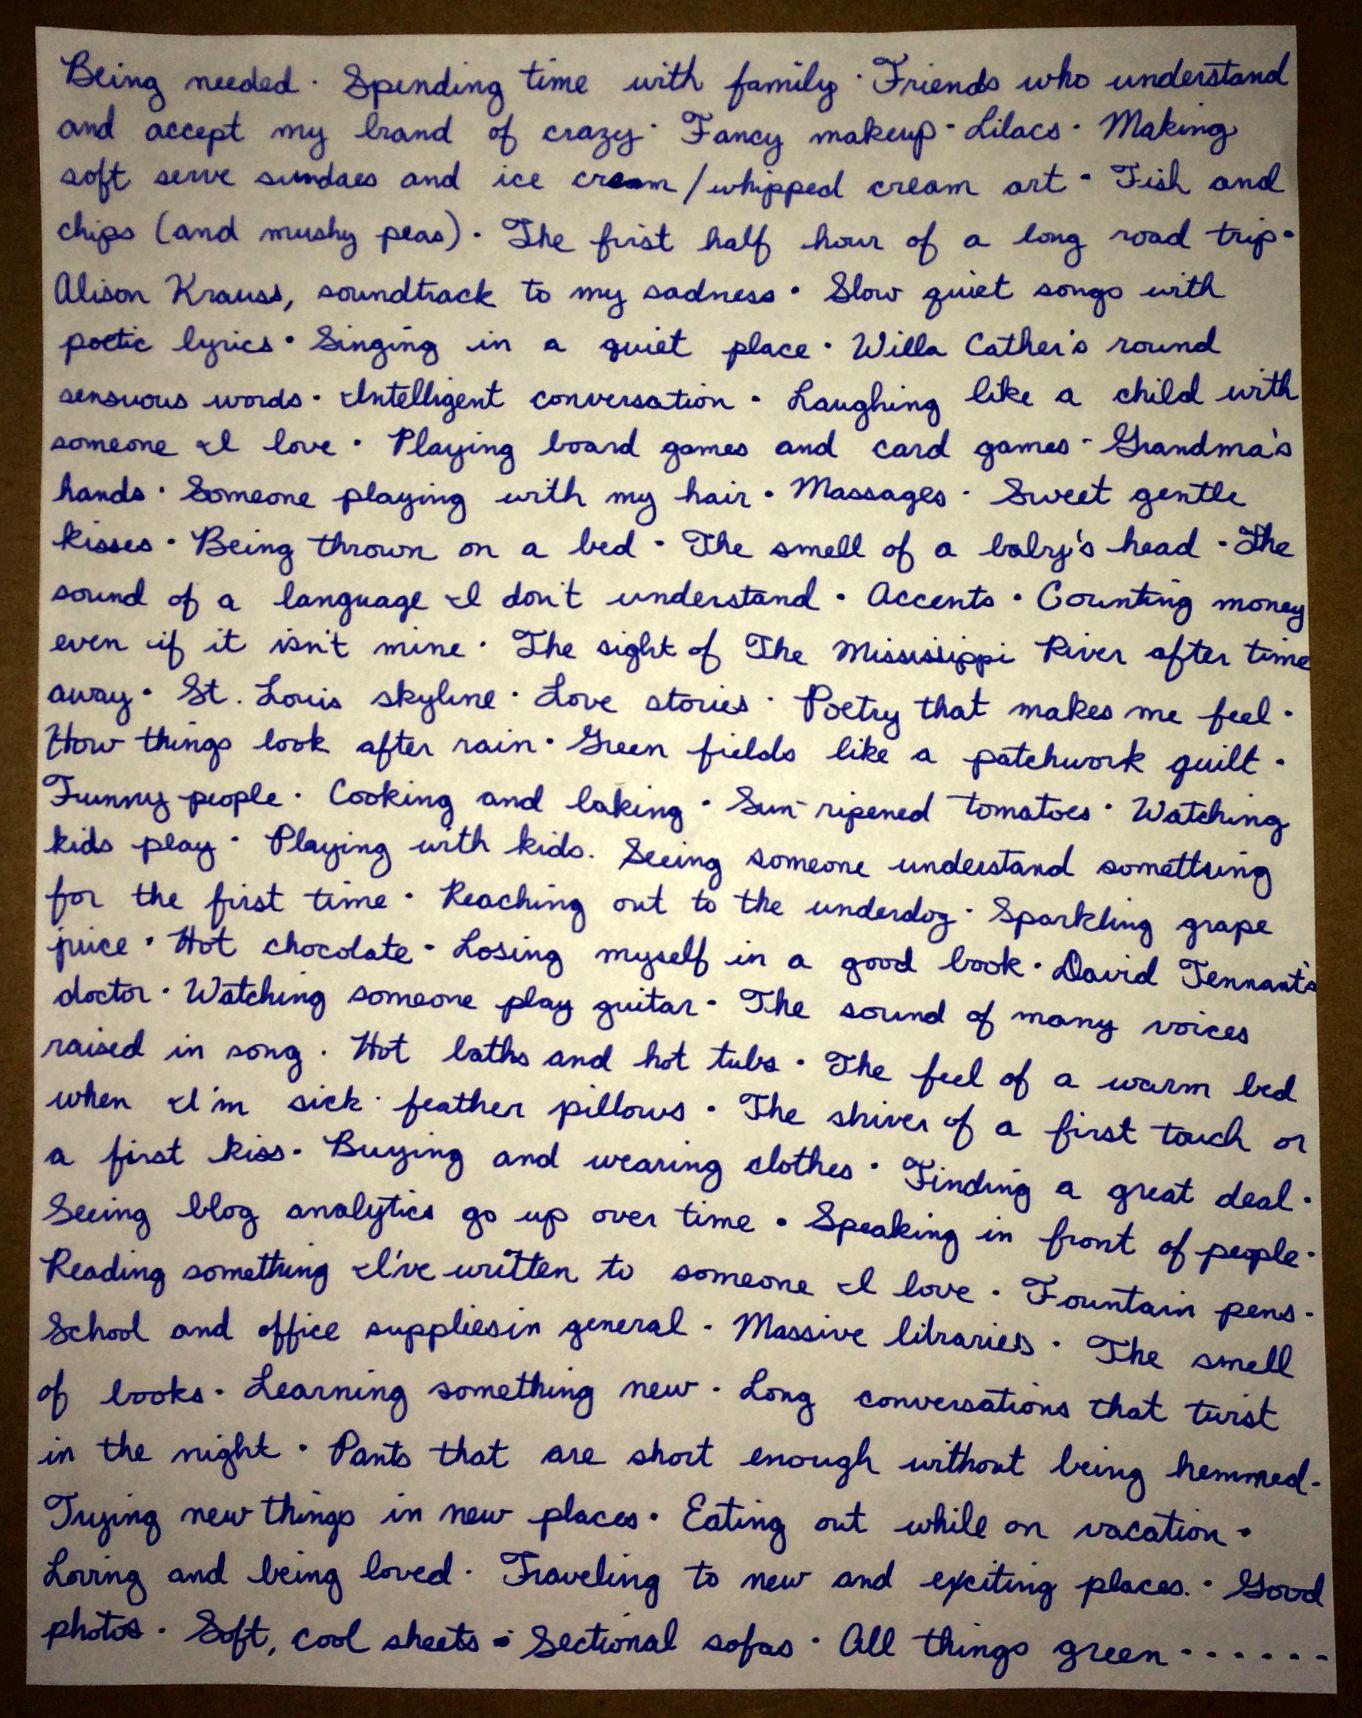 Being needed · Spending time with family · Friends who understand
and accept my brand of crazy · Fancy makeup · Lilacs · Making
soft serve sundaes and ice cream / whipped cream art · Fish and
chips (and mushy peas) · The first half hour of a long road trip ·
Alison Krauss, soundtrack to my sadness · Slow quiet songs with
poetic lyrics · Singing in a quiet place · Willa Cather's round
sensuous words · Intelligent conversation · Laughing like a child with
someone I love · Playing board games and card games · Grandma's
hands · Someone playing with my hair · Massages · Sweet gentle
kisses · Being thrown on a bed · The smell of a baby's head · The
sound of a language I don't understand · Accents · Counting money
even if it isn't mine · The sight of The Mississippi River after time
away · St. Louis skyline · Love stories · Poetry that makes me feel ·
How things look after rain · Green fields like a patchwork quilt ·
Funny people · Cooking and baking · Sun-ripened tomatoes · Watching
kids play · Playing with kids. Seeing someone understand something
for the first time · Reaching out to the underdog · Sparkling grape
juice · Hot chocolate · Losing myself in a good book · David Tennant's
doctor · Watching someone play guitar · The sound of many voices
raised in song · Hot baths and hot tubs · The feel of a warm bed
when I'm sick · feather pillows · The shiver of a first touch or
a first kiss · Buying and wearing clothes · Finding a great deal ·
Seeing blog analytics go up over time · Speaking in front of people ·
Reading something I've written to someone I love · Fountain pens ·
School and office supplies in general · Massive libraries · The smell
of books · Learning something new · Long conversations that twist
in the night · Pants that are short enough without being hemmed ·
Trying new things in new places · Eating out while on vacation ·
Loving and being loved · Traveling to new and exciting places. · Good
photos · Soft, cool sheets · Sectional sofas · All things green · · · · · ·